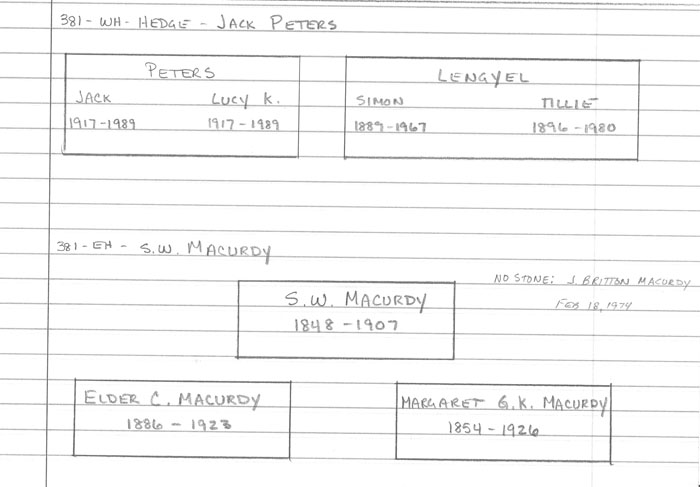 381 - WH - HEDGE - JACK PETERS
PETERS
JACK LUCY K.
1917-1989 1917-1989
LENGYEL
SIMON TILLIE
1889-1967 1896-1980
381 - EH - S.W. MACURDY
NO STONE: J. BRITTON MACURDY
FEB 18, 1974
S.W. MACURDY
1848-1907
ELDER C. MACURDY
1886 - 1923
MARGARET G.K. MACURDY
1854-1926